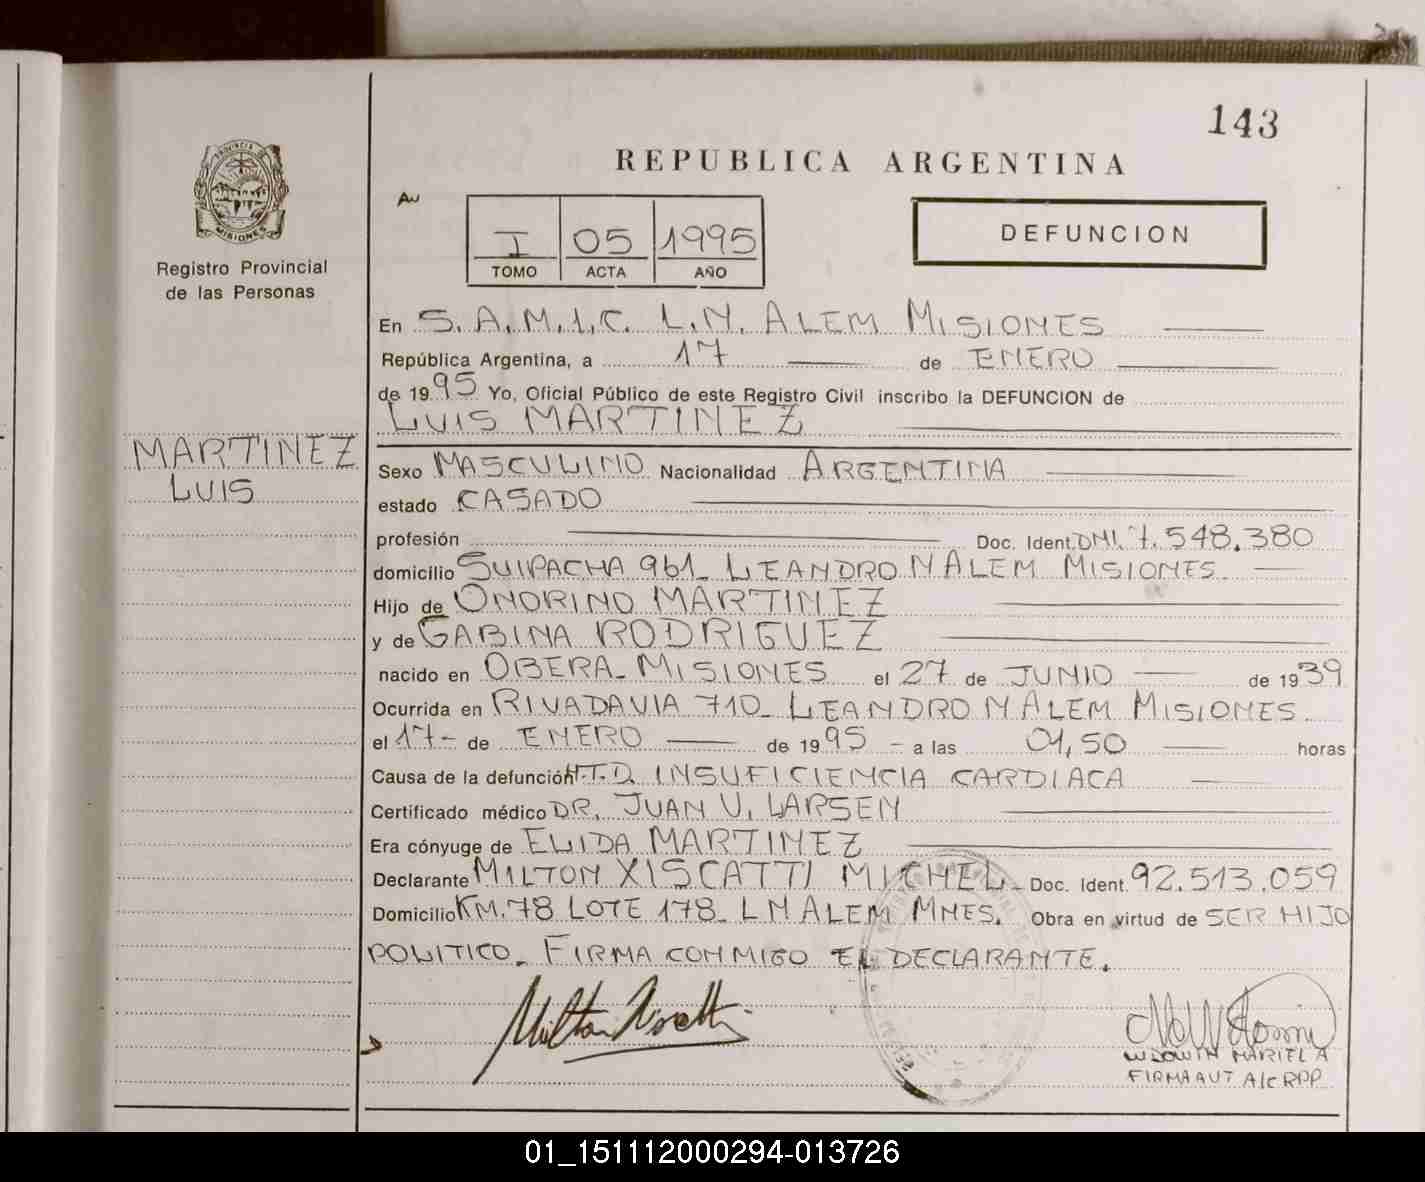 143
REPUBLICA ARGENTINA
PROVINCIA DE
MISIONES
Registro Provincial
de las Personas
I 05 1995
TOMO ACTA AÑO
DEFUNCION
En S.A.M.I.C. L.N. ALEM MISIONES
República Argentina, a 17 de ENERO
de 1995 Yo, Oficial Público de este Registro Civil inscribo la DEFUNCION de
LUIS MARTINEZ
MARTINEZ
LUIS
Sexo MASCULINO Nacionalidad ARGENTINA
estado CASADO
profesión Doc. Ident. DNI. 7.548.380
domicilio SUIPACHA 961_ LEANDRO N ALEM MISIONES
Hijo de ONORINO MARTINEZ
y de GABINA RODRIGUEZ
nacido en OBERA_ MISIONES el 27 de JUNIO de 1939
Ocurrida en RIVADAVIA 710_ LEANDRO N ALEM MISIONES
el 17- de ENERO de 1995 - a las 01,50 horas
Causa de la defunción I.T.D. INSUFICIENCIA CARDIACA
Certificado médico DR. JUAN V. LARSEN
Era cónyuge de ELIDA MARTINEZ
Declarante MILTON XISCATTI MICHEL_ Doc. Ident. 92.513.059
Domicilio KM.78 LOTE 178_ L N ALEM MNES. Obra en virtud de SER HIJO
POLITICO_ FIRMA CONMIGO EL DECLARANTE.
MARIELA
FIRMA AUT A/c RPP
01_151112000294-013726